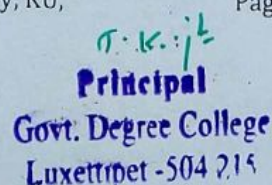 y, KU,
Pag
Principal
Govt. Degree College
Luxettipet -504 215